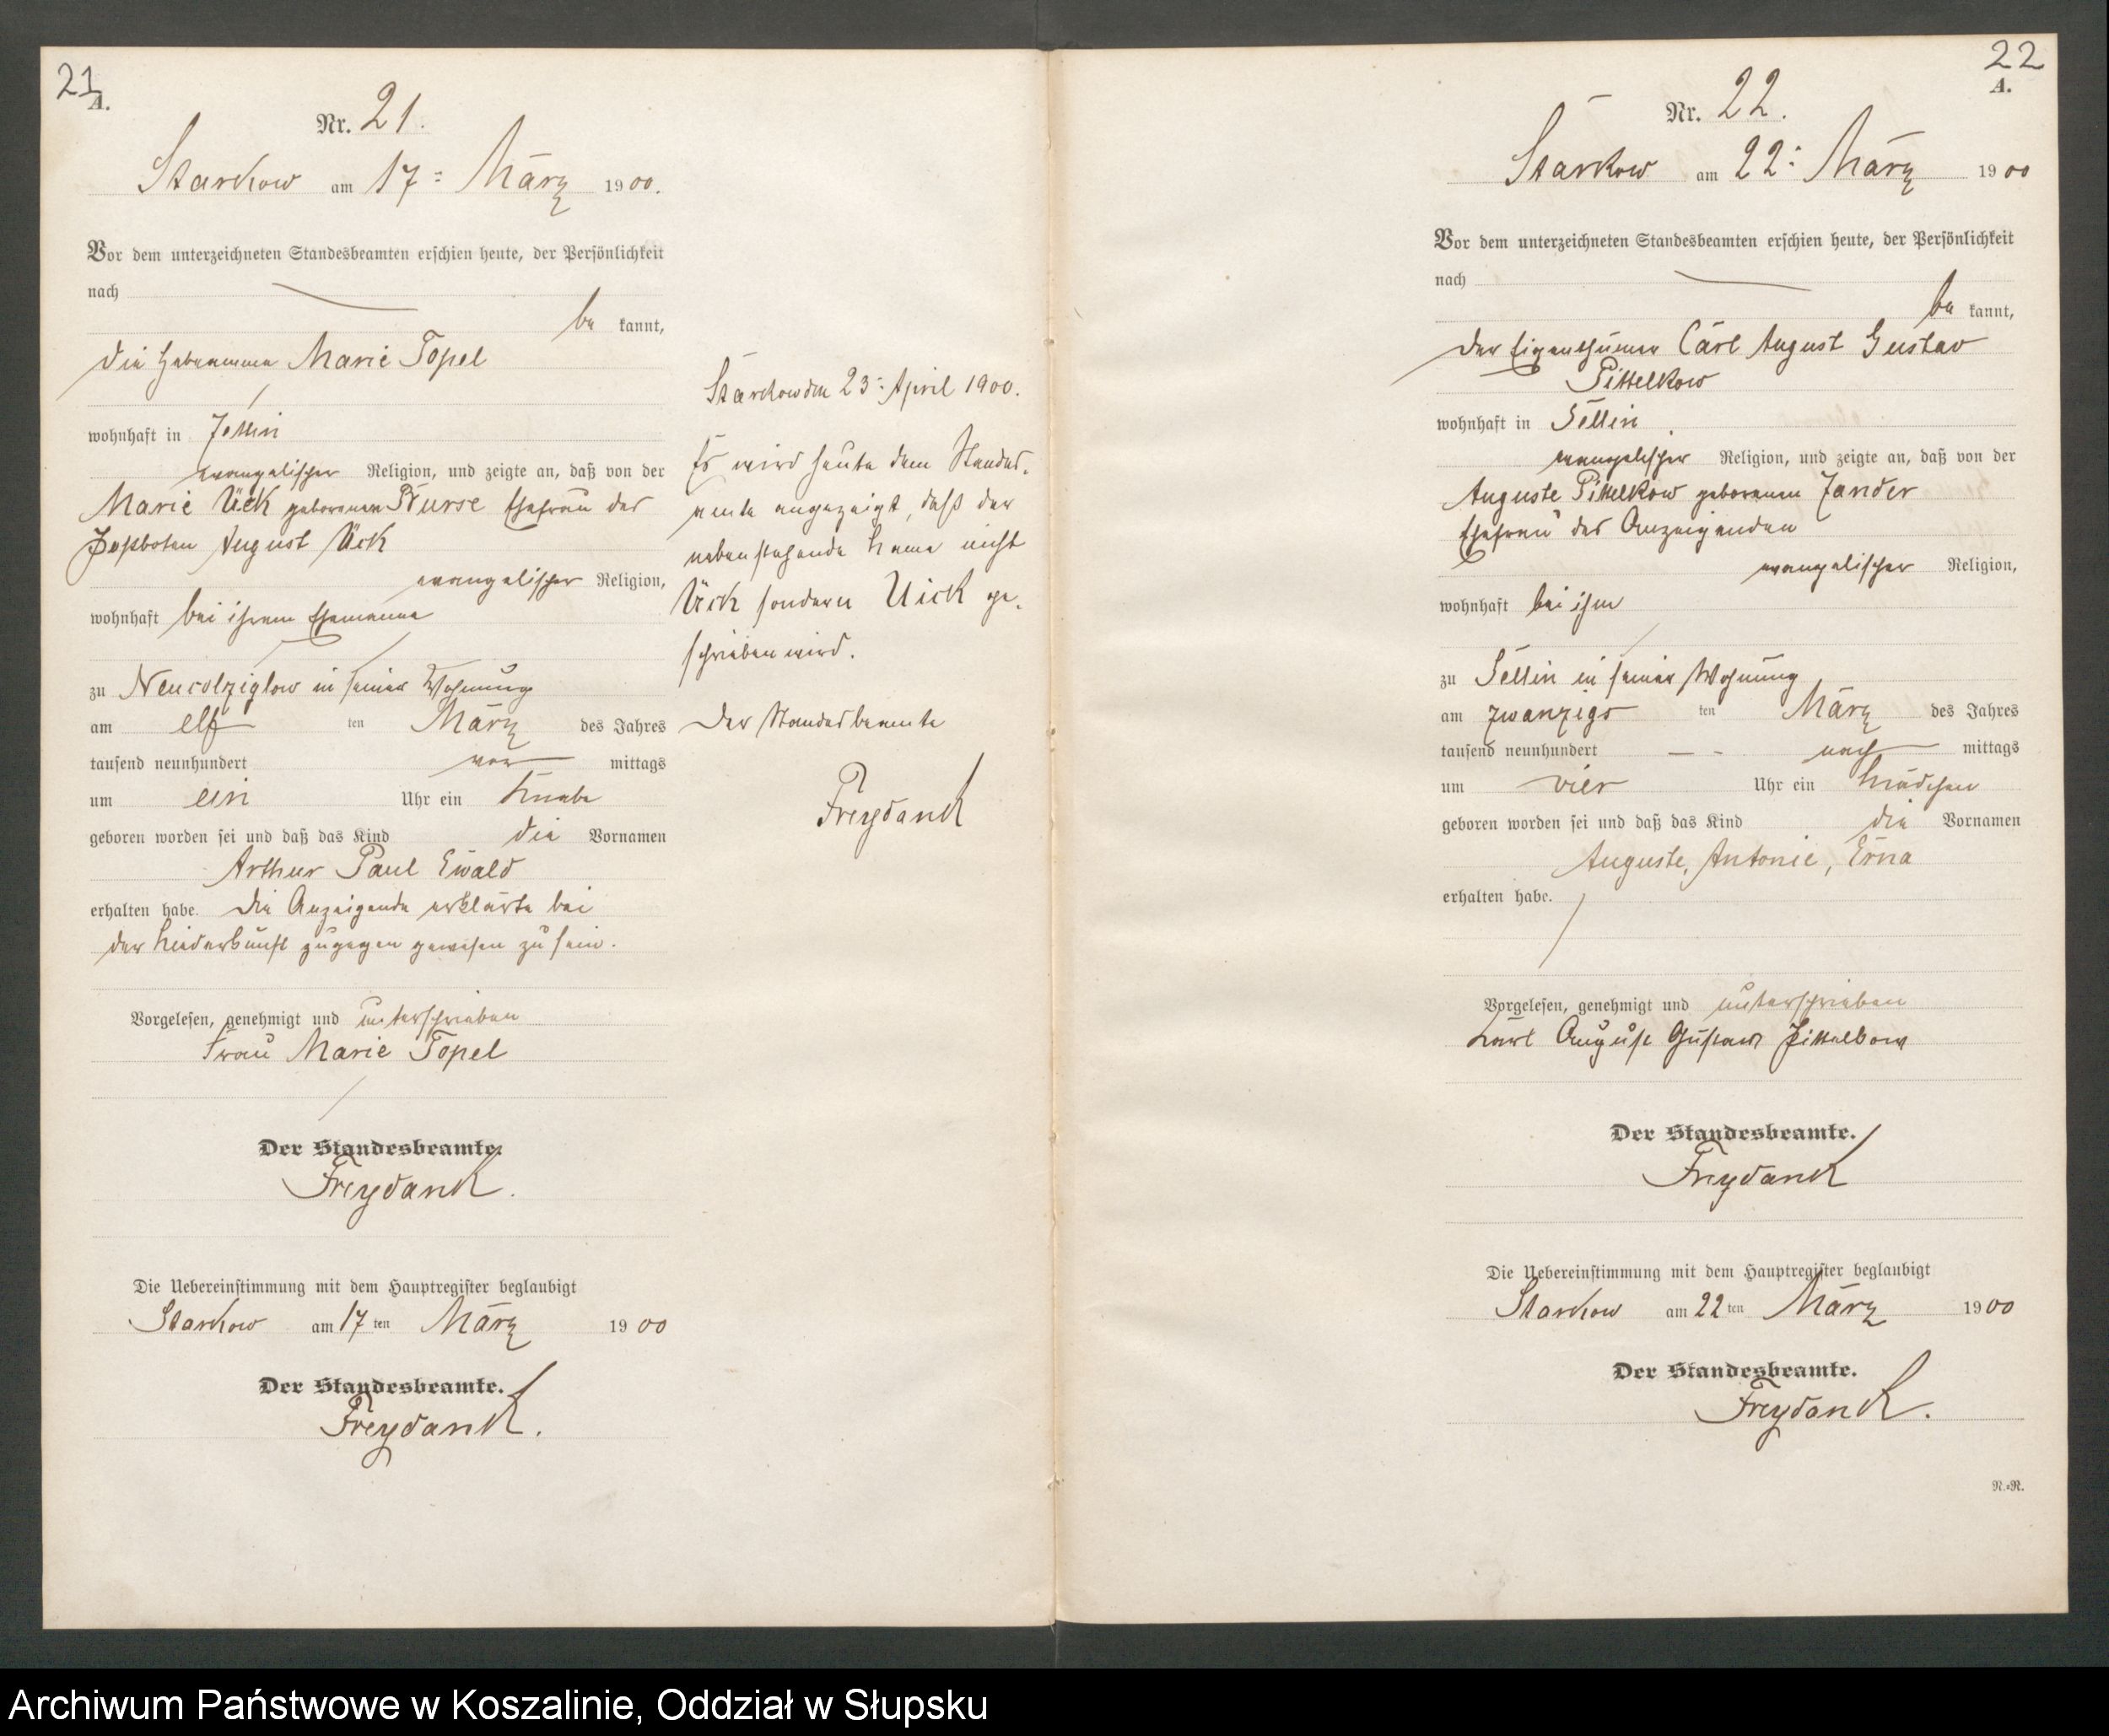 21
A.
Nr. 21.
Starkow am 17= März 1900.
Vor dem unterzeichneten Standesbeamten erschien heute, der Persönlichkeit
nach
be kannt,
die Hebeamme Marie Topel
wohnhaft in
evangelischer Religion, und zeigte an, daß von der
Marie Ück geborenen Ehefrau des
Postboten August Ück
evangelischer Religion,
wohnhaft bei ihrem Ehemanne
zu Neucolziglow in seiner Wohnung
am elf ten März des Jahres
tausend neunhundert vor mittags
um ein Uhr ein Knabe
geboren worden sei und daß das Kind die Vornamen
Arthur Paul Ewald
erhalten habe. Die Anzeigende erklärte bei
der Niederkunft zugegen gewesen zu sein.
Vorgelesen, genehmigt und unterschrieben
Frau Marie Topel
Der Standesbeamte.
Freydank.
Die Uebereinstimmung mit dem Hauptregister beglaubigt
Starkow am 17 ten März 1900
Der Standesbeamte.
Freydank.
Starkow den 23= April 1900.
Es wird heute dem Standes-
amte angezeigt, daß der
nebenstehende Name nicht
Ück sondern Uick ge-
schrieben wird.
Der Standesbeamte
Freydank
22
A.
Nr. 22.
Starkow am 22= März 1900
Vor dem unterzeichneten Standesbeamten erschien heute, der Persönlichkeit
nach
be kannt,
der Eigenthümer Carl August Gustav
Pittelkow
wohnhaft in Sellin
evangelischer Religion, und zeigte an, daß von der
Auguste Pittelkow geborenen Zander
Ehefrau des Anzeigenden
evangelischer Religion,
wohnhaft bei ihm
zu Sellin in seiner Wohnung
am zwanzigs ten März des Jahres
tausend neunhundert nach mittags
um vier Uhr ein Mädchen
geboren worden sei und daß das Kind die Vornamen
Auguste, Antonie, Erna
erhalten habe.
Vorgelesen, genehmigt und unterschrieben
Karl August Gustaw Pittelkow
Der Standesbeamte.
Freydank
Die Uebereinstimmung mit dem Hauptregister beglaubigt
Starkow am 22 ten März 1900
Der Standesbeamte.
Freydank.
R.=R.
Archiwum Państwowe w Koszalinie, Oddział w Słupsku